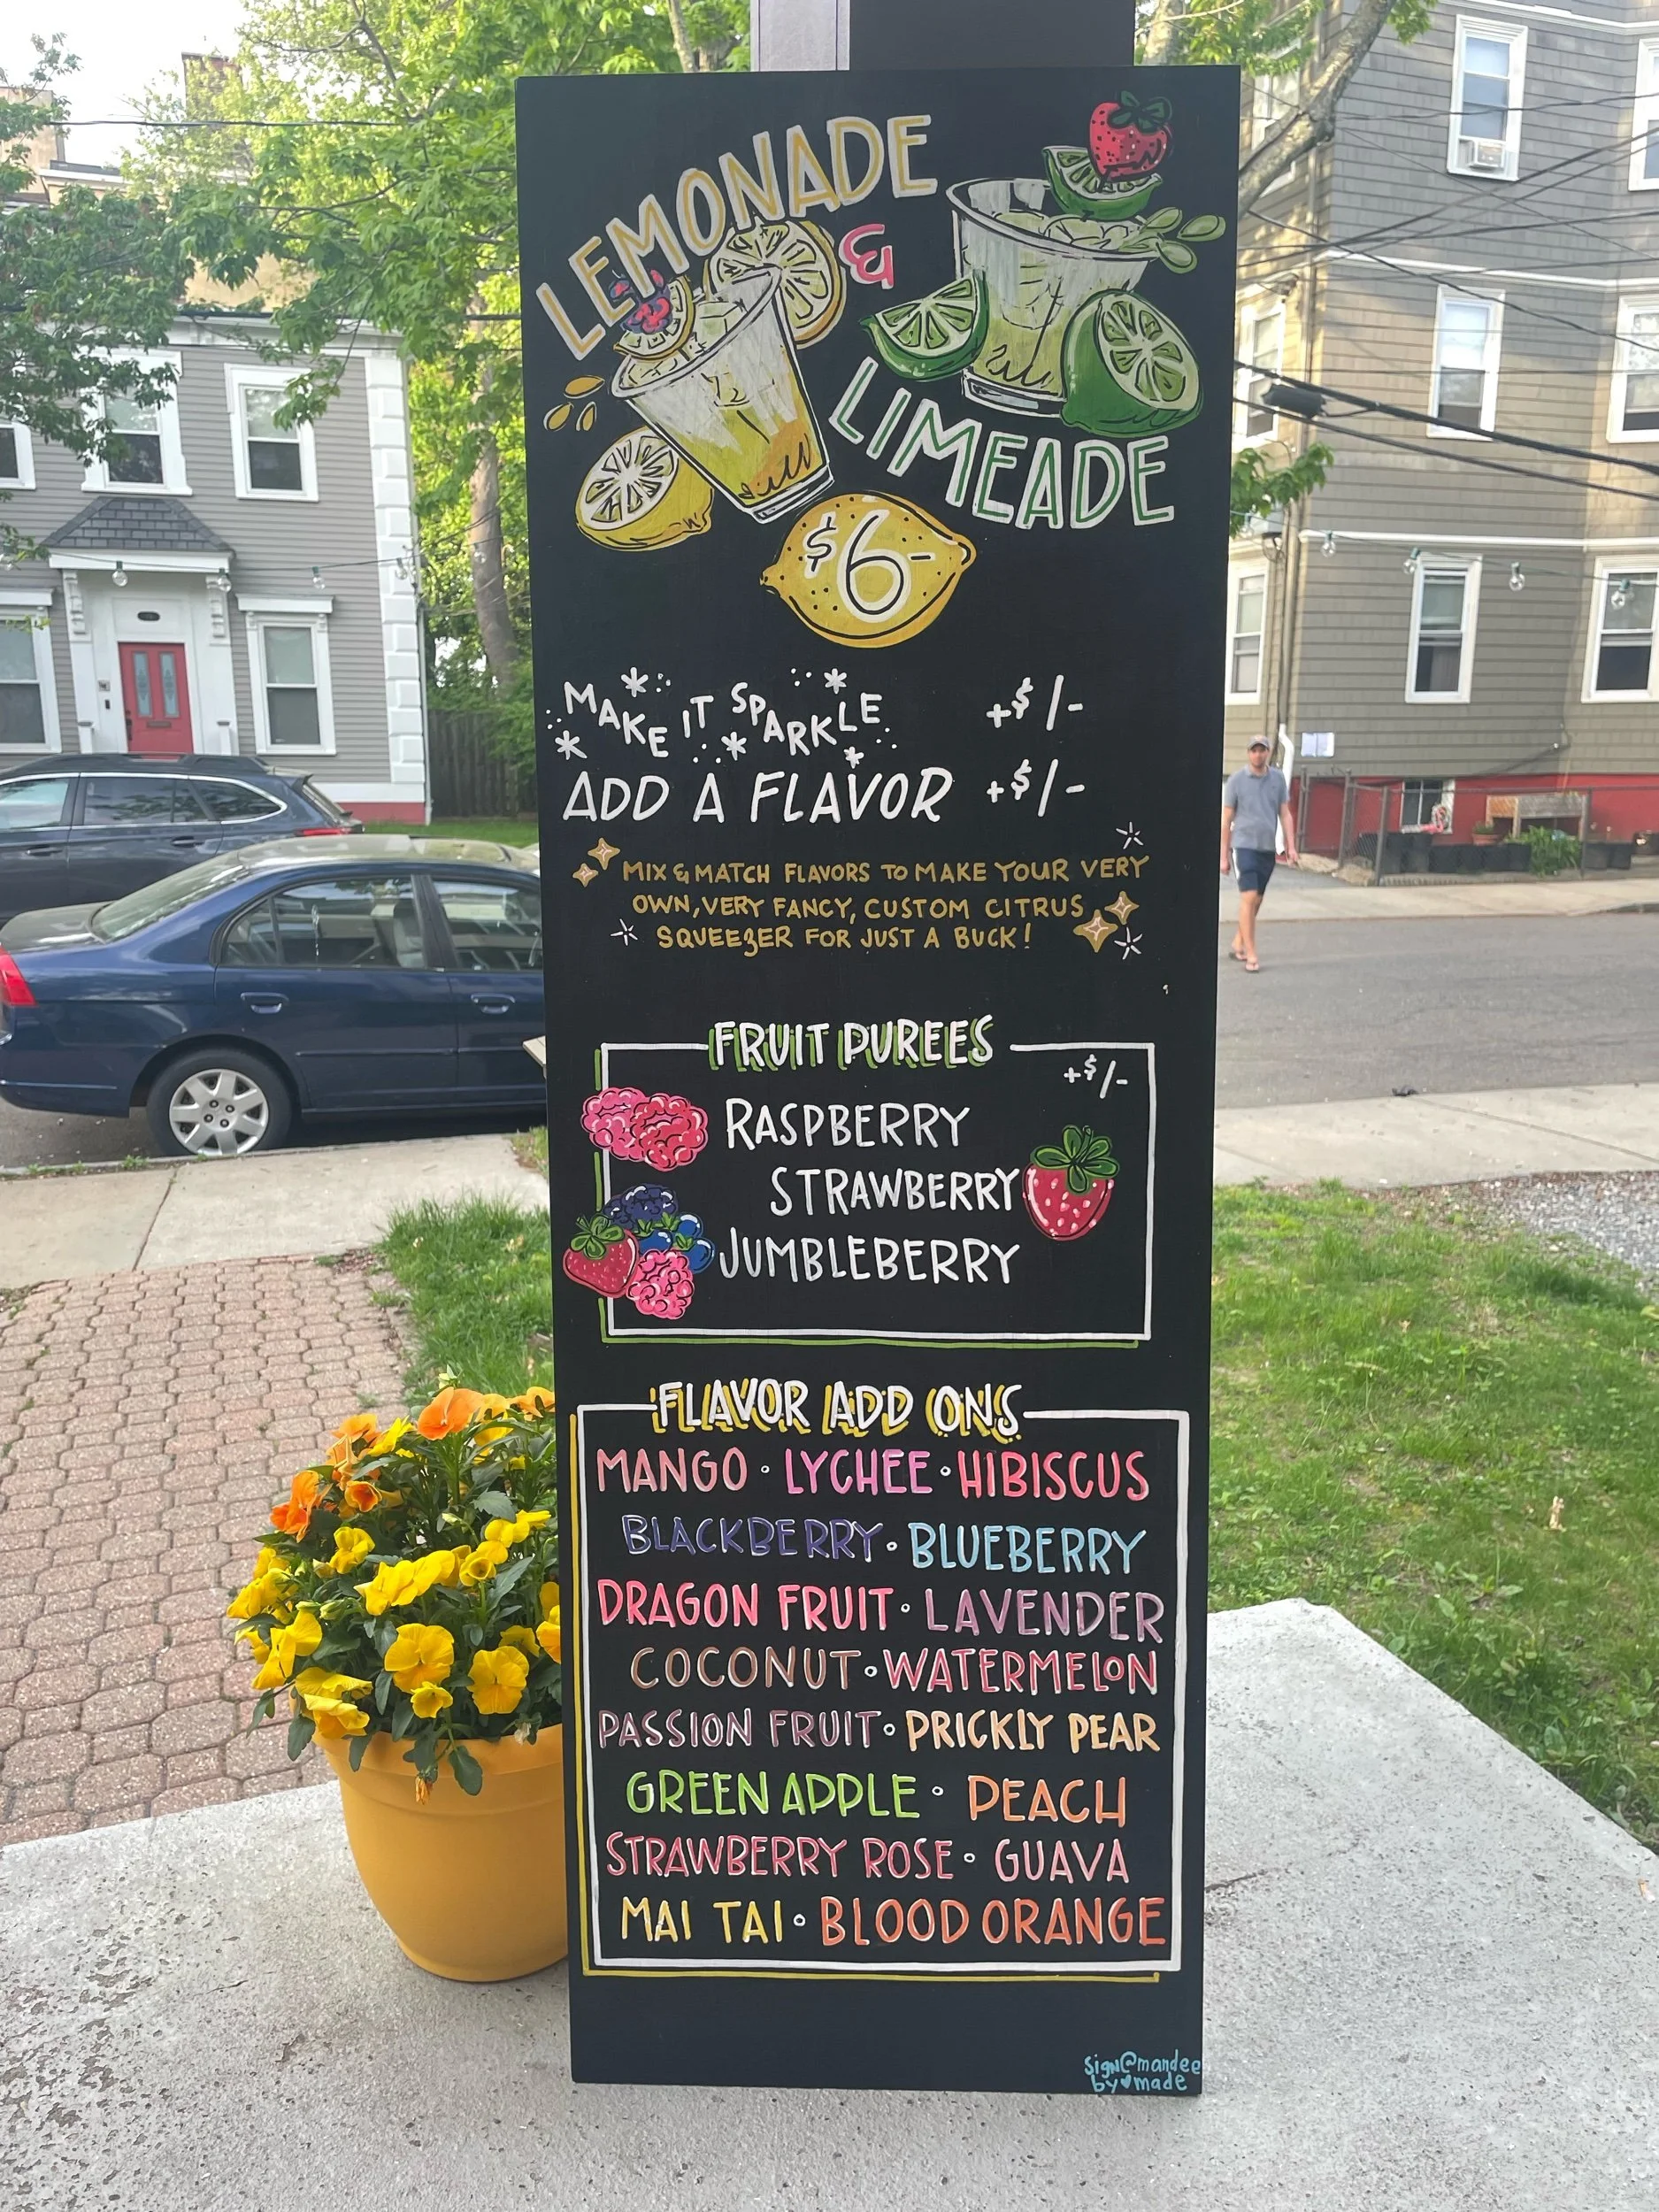 LEMONADE
&
LIMEADE
$6-
MAKE IT SPARKLE +$1-
ADD A FLAVOR +$1-
MIX & MATCH FLAVORS TO MAKE YOUR VERY
OWN, VERY FANCY, CUSTOM CITRUS
SQUEEZER FOR JUST A BUCK!
FRUIT PUREES
+$1-
RASPBERRY
STRAWBERRY
JUMBLEBERRY
FLAVOR ADD ONS
MANGO · LYCHEE · HIBISCUS
BLACKBERRY · BLUEBERRY
DRAGON FRUIT · LAVENDER
COCONUT · WATERMELON
PASSION FRUIT · PRICKLY PEAR
GREEN APPLE · PEACH
STRAWBERRY ROSE · GUAVA
MAI TAI · BLOOD ORANGE
sign@mandee
by♥made